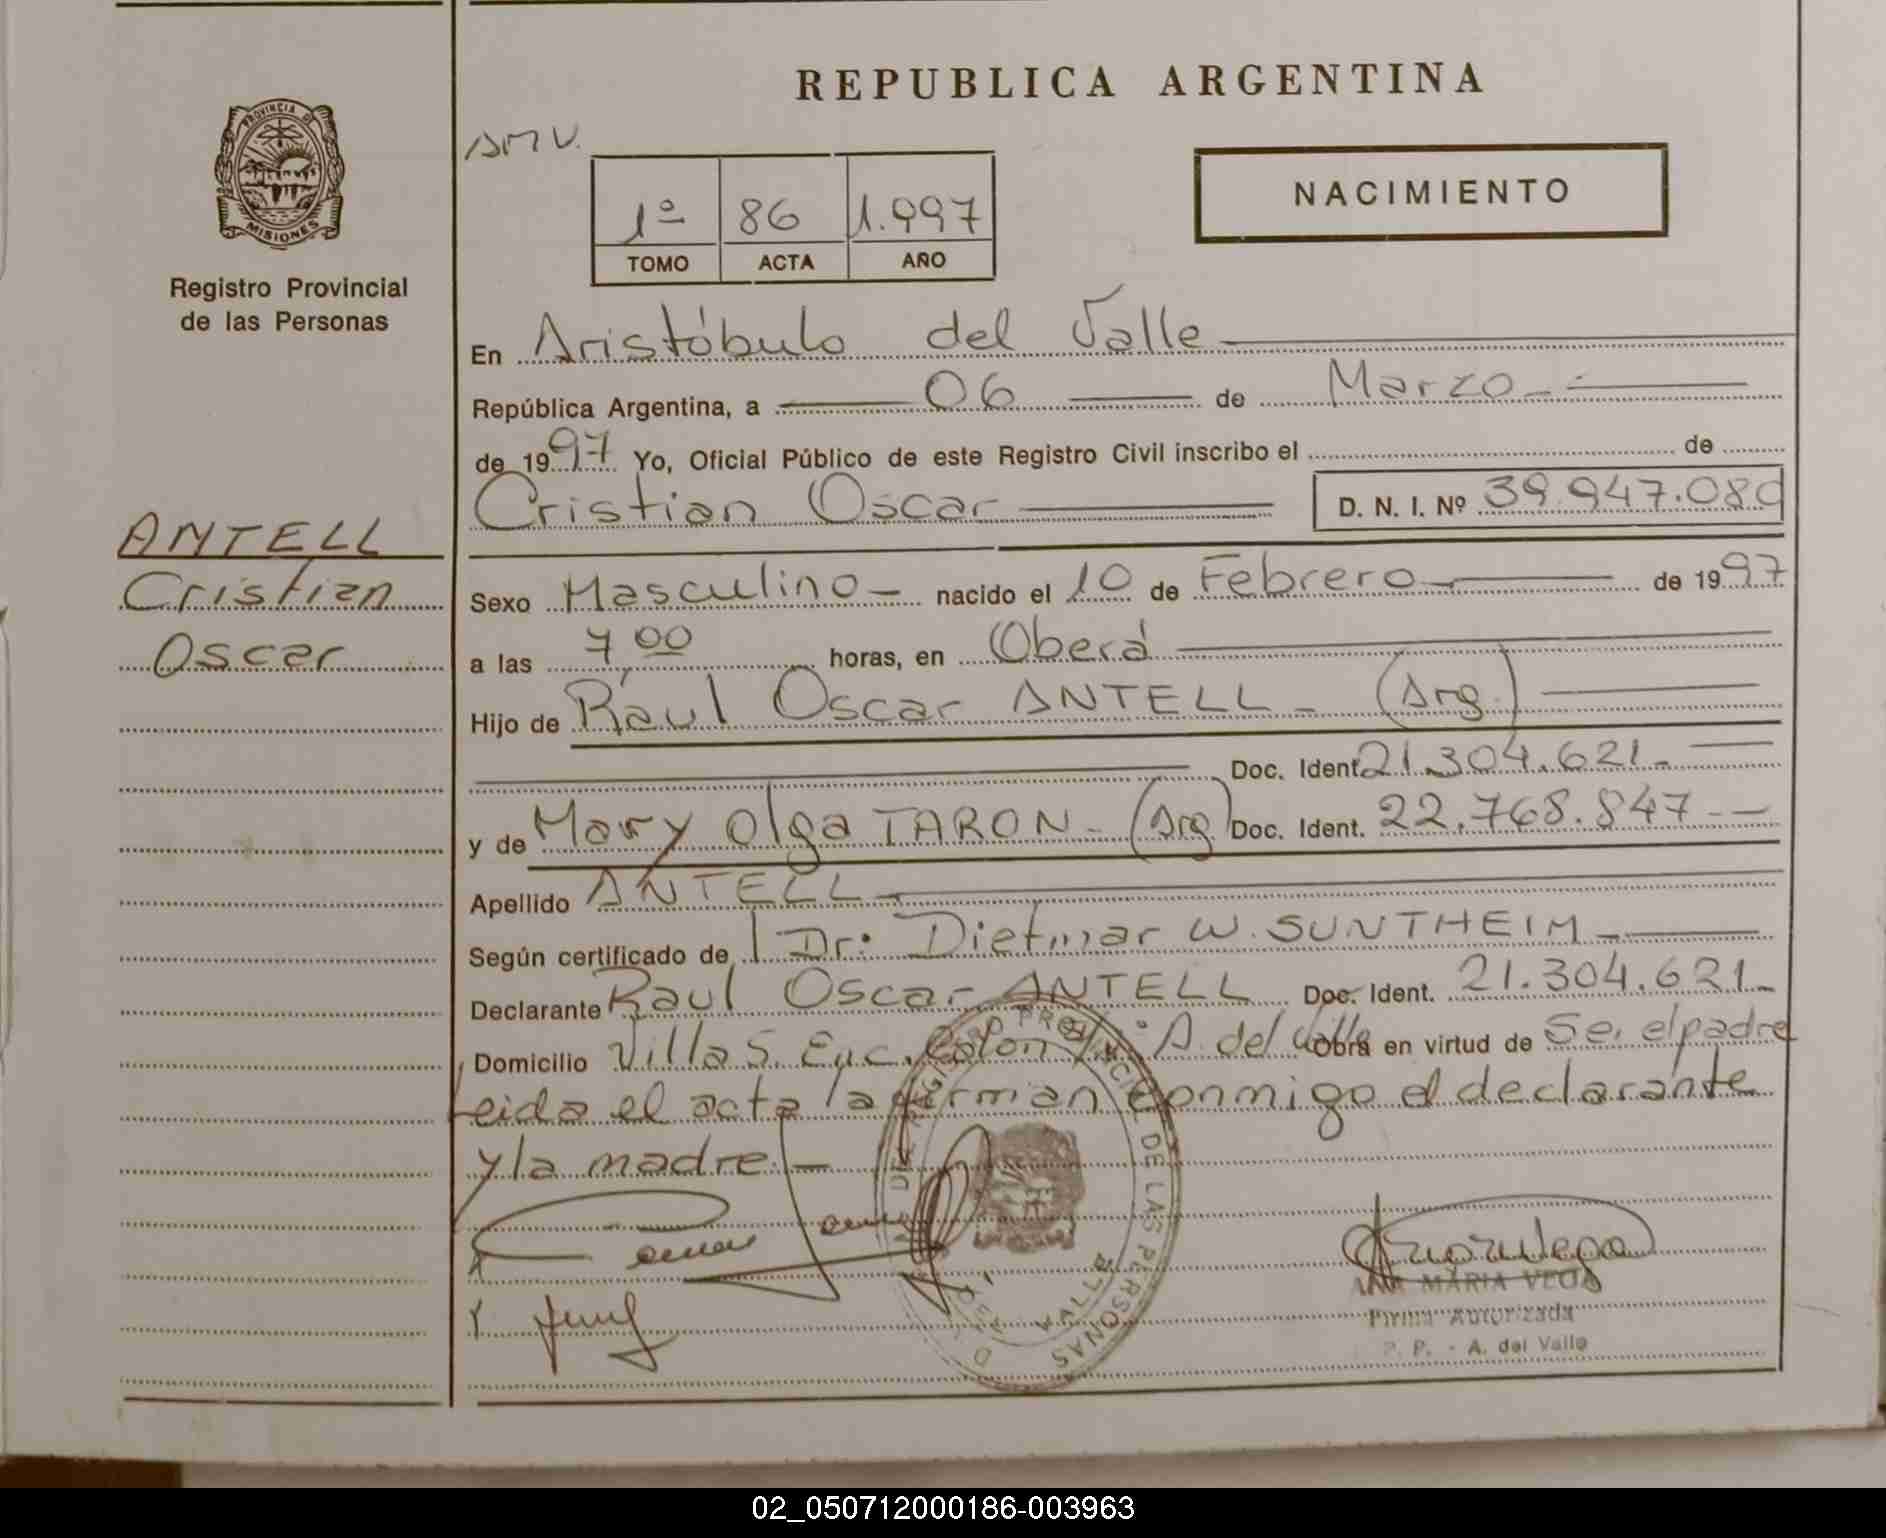 REPUBLICA ARGENTINA
PROVINCIA DE
MISIONES
Registro Provincial
de las Personas
AMV.
1º 86 1.997
TOMO ACTA AÑO
NACIMIENTO
En Aristóbulo del Valle
República Argentina, a 06 de Marzo
de 1997 Yo, Oficial Público de este Registro Civil inscribo el de
Cristian Oscar D. N. I. Nº 39.947.080
ANTELL
Cristian
Oscar
Sexo Masculino nacido el 10 de Febrero de 1997
a las 7,00 horas, en Oberá
Hijo de Raúl Oscar ANTELL - (Arg.)
Doc. Ident. 21.304.621-
y de Mary Olga TARON - (Arg.) Doc. Ident. 22.768.847 -
Apellido ANTELL
Según certificado de Dr: Dietmar W. SUNTHEIM
Declarante Raul Oscar ANTELL Doc. Ident. 21.304.621-
Domicilio Villa S. Enc. Colon A. del Valle Obra en virtud de Ser el padre
Leida el acta la firman conmigo el declarante
y la madre.-
REGISTRO PROVINCIAL DE LAS PERSONAS
VALLE
ANA MARIA VEGA
Firma Autorizada
P. P. - A. del Valle
02_050712000186-003963